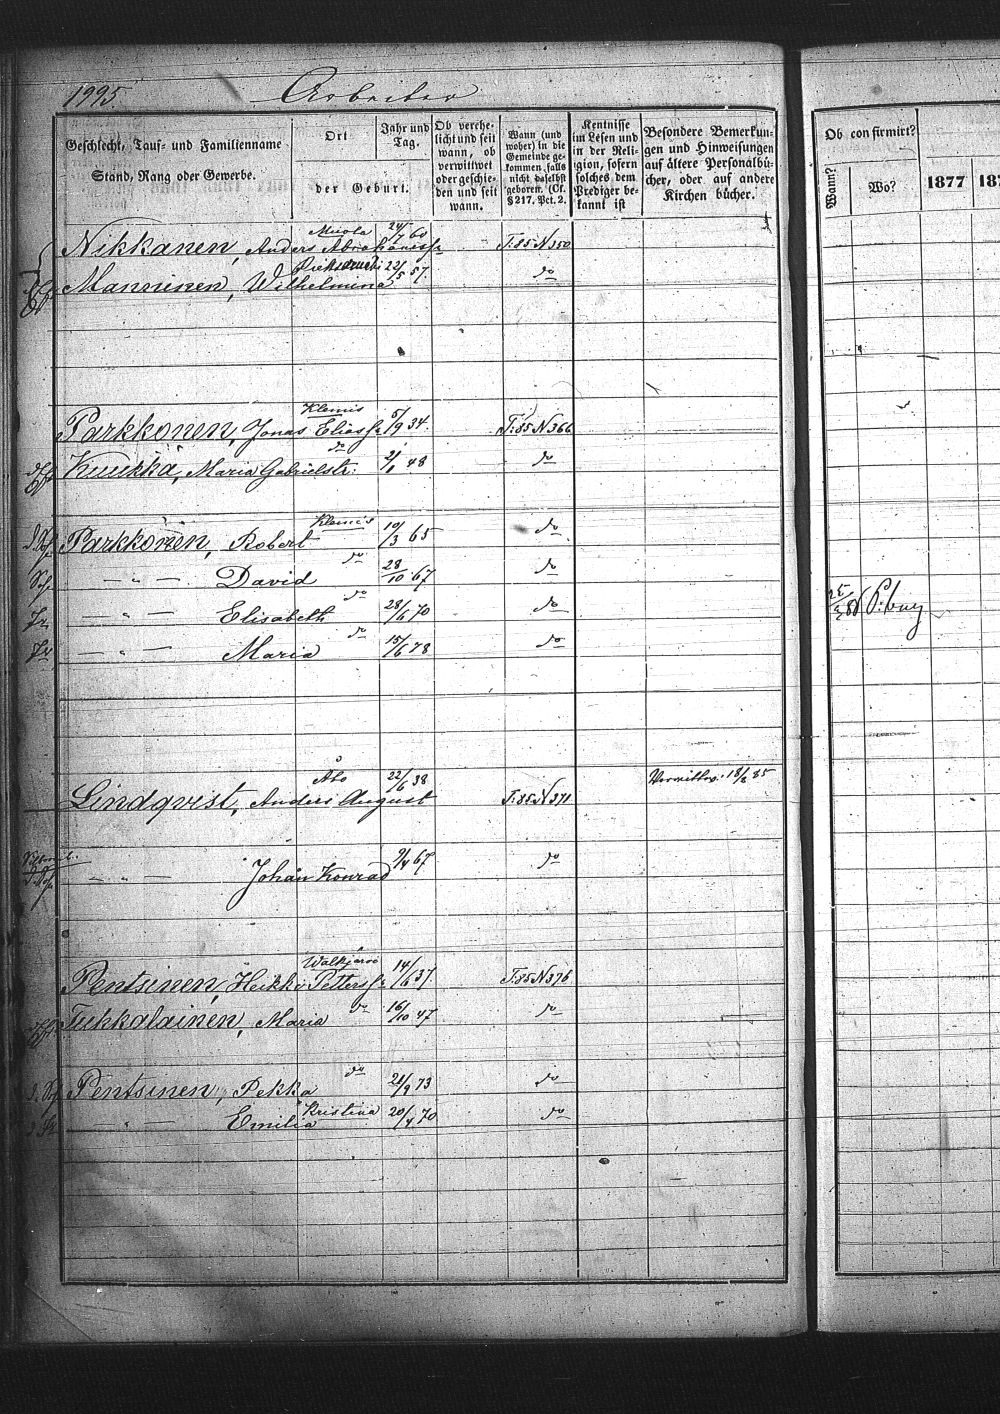 1995. Arbeiter
Geschlecht, Tauf- und Familienname
Stand, Rang oder Gewerbe.
Ort
der Geburt.
Jahr und
Tag.
Ob verehe-
licht und seit
wann, ob
verwittwet
oder geschie-
den und seit
wann.
Wann (und
woher) in die
Gemeinde ge-
kommen, falls
nicht daselbst
geboren. (Cf.
§ 217. Pct. 2.
Kentnisse
im Lesen und
in der Reli-
gion, sofern
solches dem
Prediger be-
kannt ist
Besondere Bemerkun-
gen und Hinweisungen
auf ältere Personalbü-
cher, oder auf andere
Kirchen bücher.
Ob confirmirt?
Wann?
Wo?
1877
Nikkanen, Anders Abrahamss. Muola 24/7 60 T:85 N350
Manninen, Wilhelmina 22/5 57. do
Parkkonen, Jonas Eliass. Klemis 5/9 34. T:85 N366
Kuukka, Maria Gabrielstr: do 2/1 48 do
Parkkonen, Robert Klemis 10/3 65 do
— " — David do 28/10 67 do
— " — Elisabeth do 28/6 70 do
— " — Maria do 15/6 78 do
Lindqvist, Anders August Åbo 22/6 38 T:85 N371 18/8 85
— " — Johan Konrad 9/4 67 do
Pentsinen, Heikki Petterss. Walkjärvi 14/6 37. T:85 N376
Tukkalainen, Maria do 16/10 47 do
d. S. Pentsinen, Pekka do 21/9 73 do
— " — Emilia Kristina 20/4 70 do